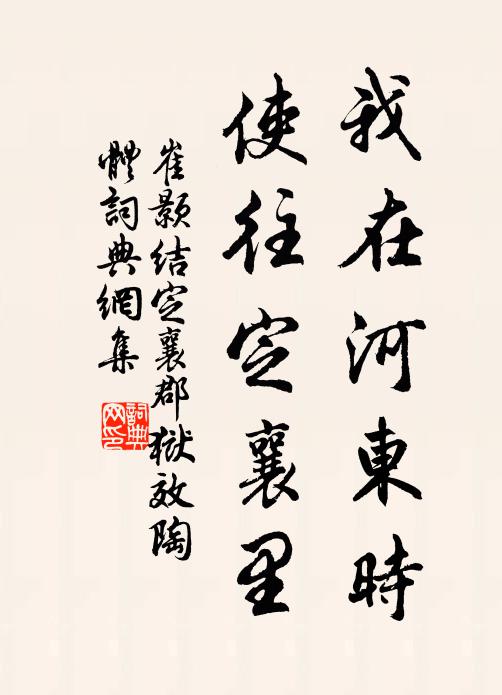 我在河東時
使往定襄里
崔顥結定襄郡獄效陶
體詞典網集
詞典网印